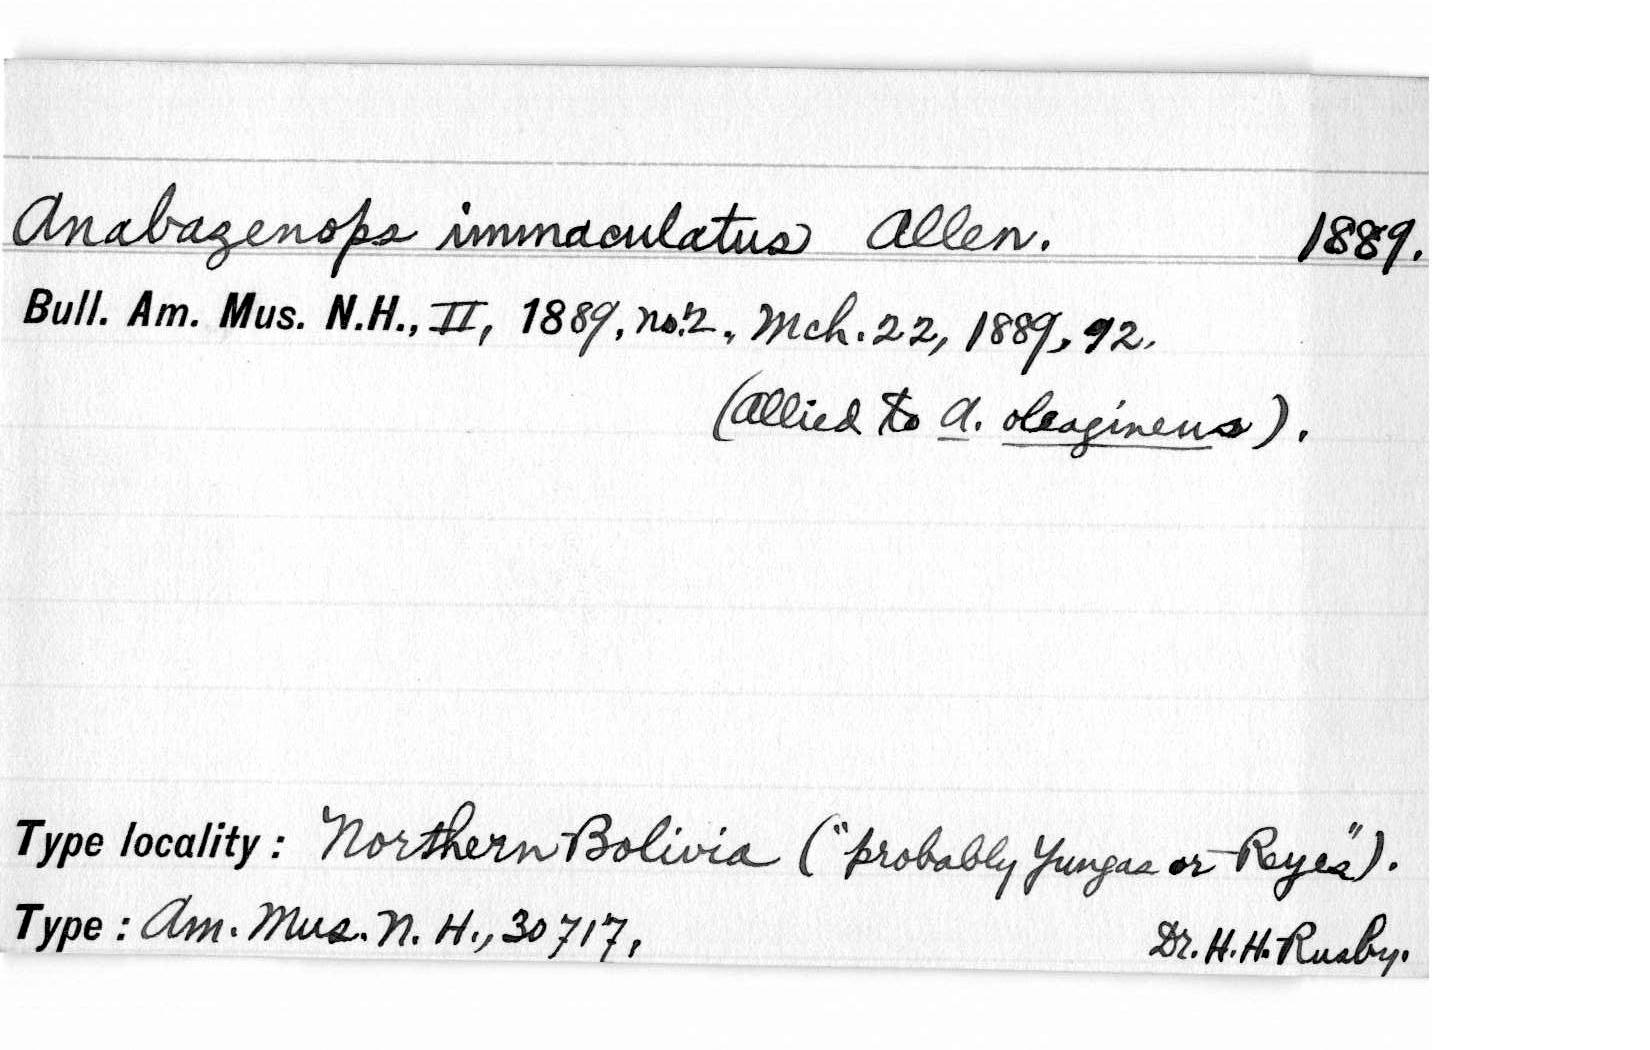 Anabazenops immaculatus Allen. 1889.
Bull. Am. Mus. N.H., II, 1889, no. 2, Mch. 22, 1889, 92.
(Allied to A. oleagineus).
Type locality: Northern Bolivia ("probably Yungas or Reyes").
Type: Am. Mus. N. H., 30717, Dr. H. H. Rusby.